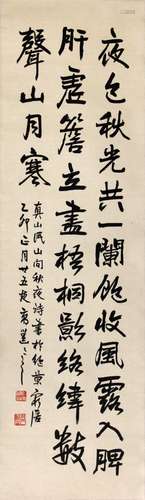 夜色秋光共一闌飽收風露入脾
肝虛簷立盡梧桐影絡緯數
聲山月寒
真山民山間秋夜詩書於
乙卯正月廿五夜